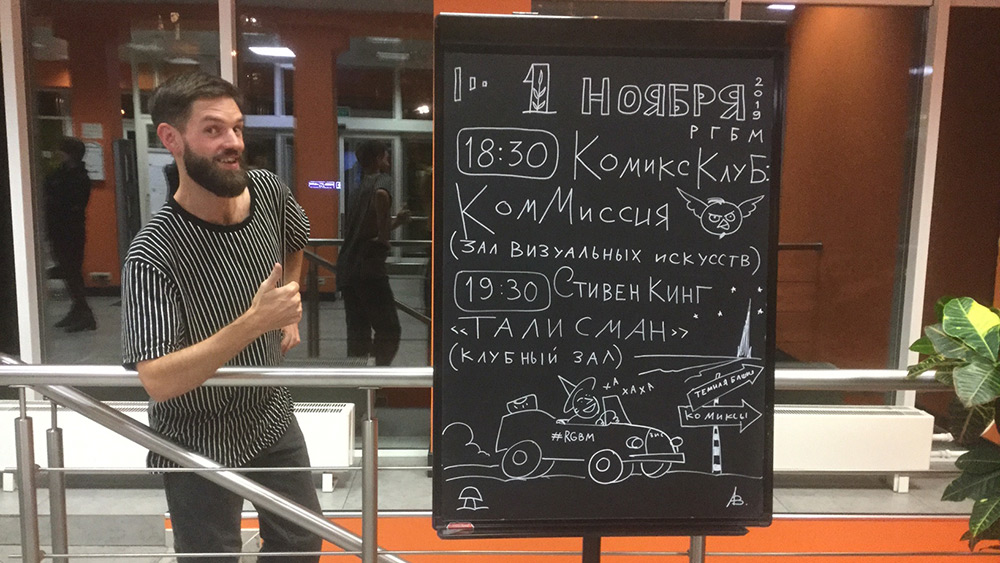 1 НОЯБРЯ 2019
РГБМ
18:30 КОМИКСКЛУБ:
КОММИССИЯ
(ЗАЛ ВИЗУАЛЬНЫХ ИСКУССТВ)
19:30 СТИВЕН КИНГ
«ТАЛИСМАН»
(КЛУБНЫЙ ЗАЛ)
ХА ХАХА
ТЕМНАЯ БАШНЯ
КОМИКСЫ
#RGBM
АВ.